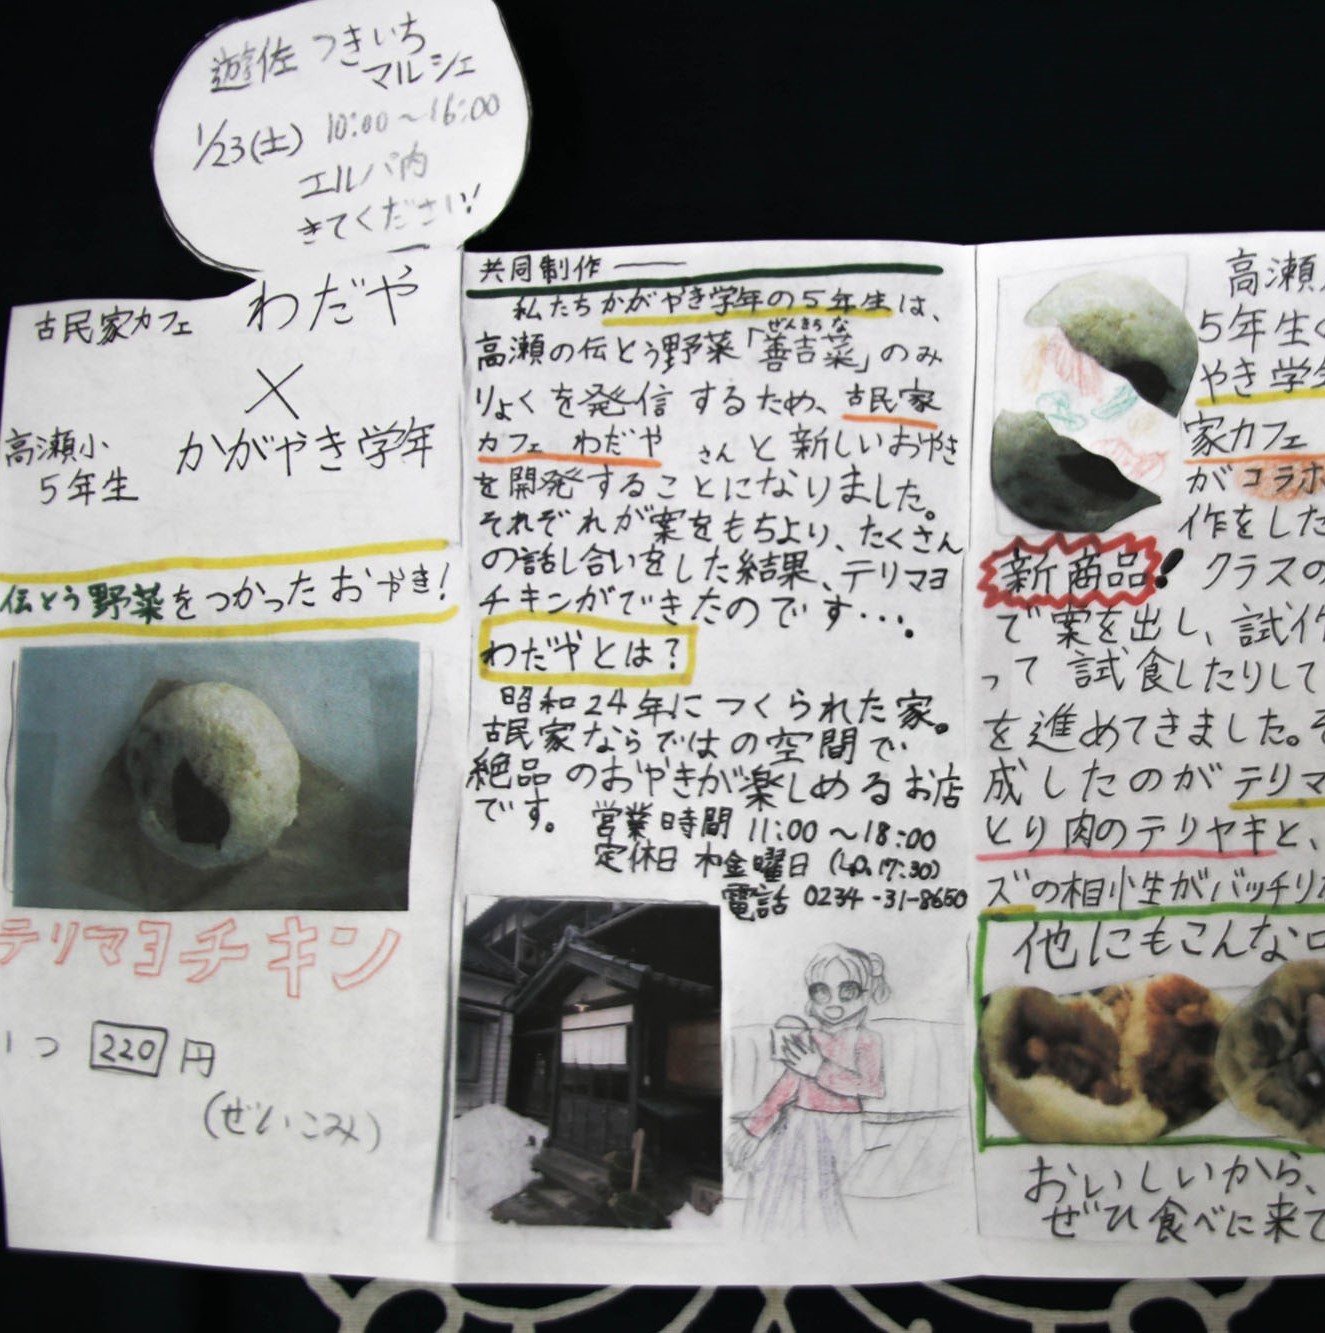 遊佐 つきいち
マルシェ
1/23(土) 10:00～16:00
エルパ内
きてください!
古民家カフェ わだや
×
高瀬小
5年生
かがやき学年
伝とう野菜をつかったおやき!
テリマヨチキン
1つ 220円
(ぜいこみ)
共同制作
私たちかがやき学年の5年生は、
ぜんきちな
高瀬の伝とう野菜「善吉菜」のみ
りょくを発信するため、古民家
カフェ わだや さんと新しいおやき
を開発することになりました。
それぞれが案をもちより、たくさん
の話し合いをした結果、テリマヨ
チキンができたのです・・・。
わだやとは?
昭和24年につくられた家。
古民家ならではの空間で
絶品のおやきが楽しめるお店
です。
営業時間 11:00～18:00
定休日 木金曜日 (L.O.17:30)
電話 0234-31-8650
高瀬
5年生
やき学
家カフェ
がコラボ
作をした
新商品! クラスの
で案を出し、試作
って試食したりして
を進めてきました。そ
成したのがテリマ
とり肉のテリヤキと、
ズの相小生がバッチリ
他にもこんな
おいしいから、
ぜひ食べに来て